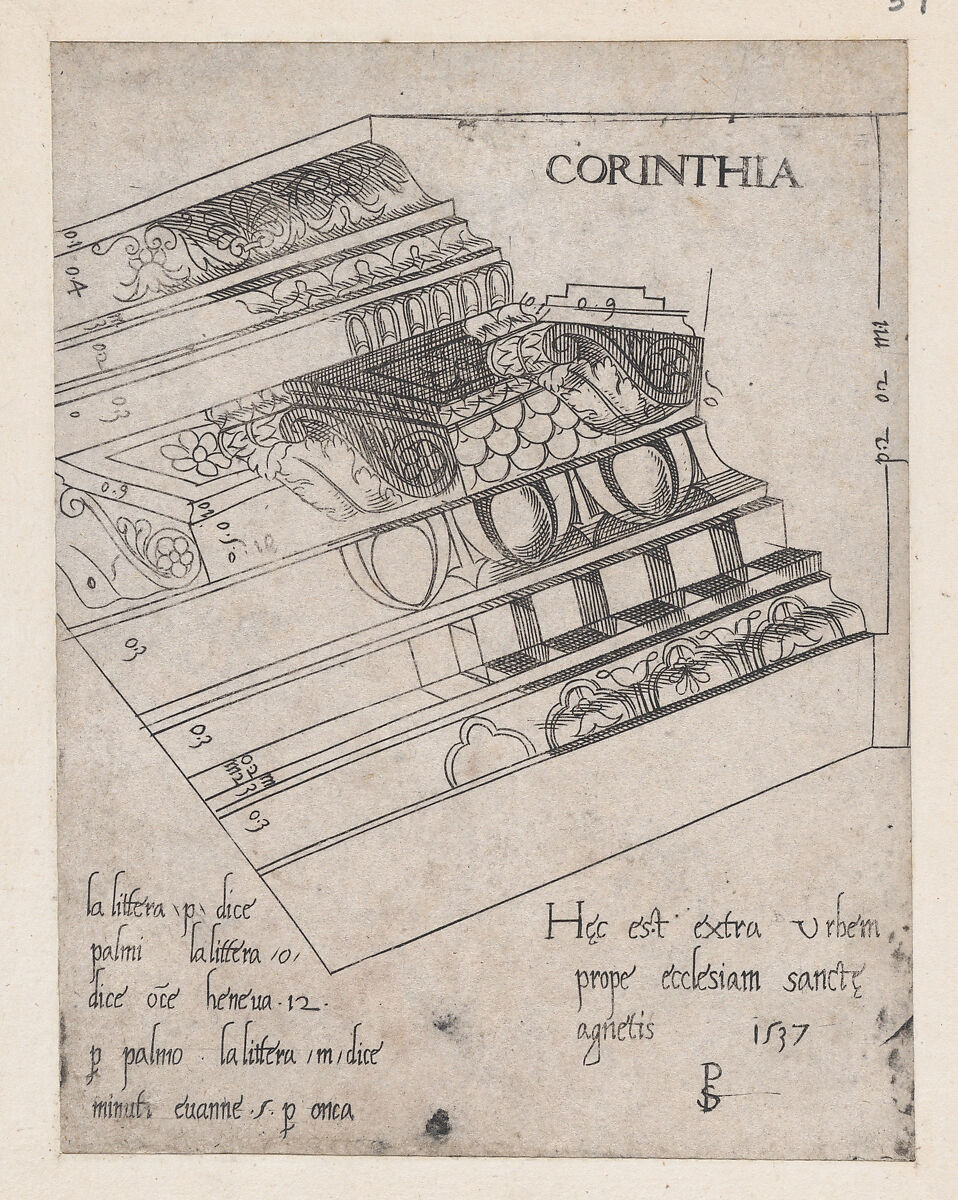 CORINTHIA
0.1
0.4
0.3
0.9
0.9
p.2 o2 m1
0.3
0.3
0.2 m
0.3
la littera p dice
palmi la littera /o/
dice ōce heneua .12.
p̱ palmo . la littera /m/ dice
minuti euanne .5. p̱ onca
Hęc est extra Urbem
prope ecclesiam sanctę
agnetis 1537
PS